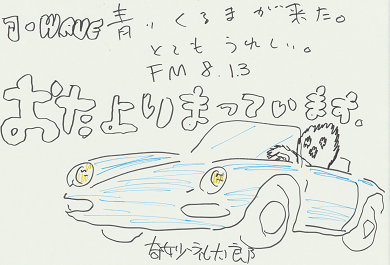 J-WAVE 青いくるまが来た。
とてもうれしい。
FM 81.3
おたよりまっています。